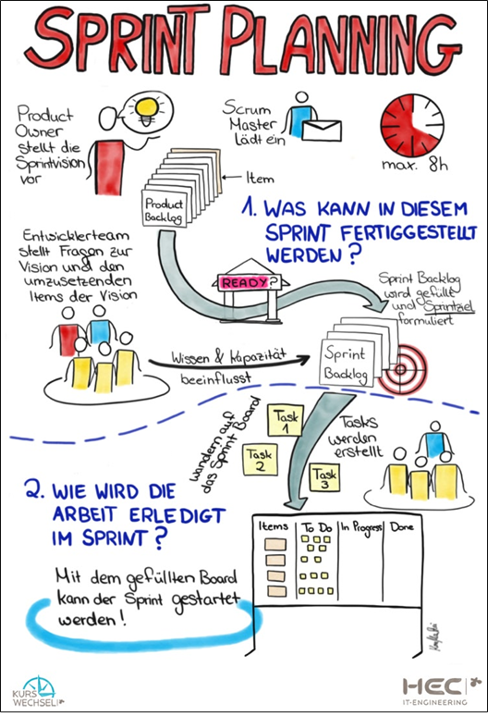 SPRINT PLANNING
Product
Owner
stellt die
Sprintvision
vor
Scrum
Master
lädt ein
max. 8h
Item
Product
Backlog
1. WAS KANN IN DIESEM
SPRINT FERTIGGESTELLT
WERDEN?
Entwicklerteam
stellt Fragen zur
Vision und den
umzusetzenden
Items der Vision
READY?
Sprint Backlog
wird gefüllt
und Sprintziel
formuliert
Wissen & Kapazität
beeinflusst
Sprint
Backlog
wandern auf
das Sprint Board
Task
1
Task
2
Task
3
Tasks
werden
erstellt
2. WIE WIRD DIE
ARBEIT ERLEDIGT
IM SPRINT?
Items To Do In Progress Done
Mit dem gefüllten Board
kann der Sprint gestartet
werden!
KURS
WECHSEL
HEC
IT-ENGINEERING